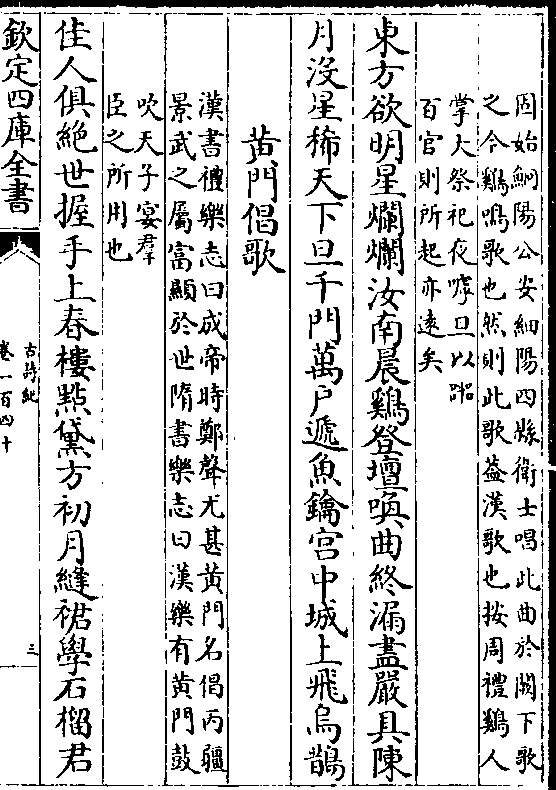 固始鮦陽公安細陽四縣衛士唱此曲於闕下歌
之今鷄鳴歌也然則此歌葢漢歌也按周禮鷄人
掌大祭祀夜嘑旦以𠮧
百官則所起亦遠矣
東方欲明星爛爛汝南晨鷄登壇喚曲終漏盡嚴具陳
月没星稀天下旦千門萬户遞魚鑰宫中城上飛烏鵲
黄門倡歌
漢書禮樂志曰成帝時鄭聲尤甚黄門名倡丙疆
景武之屬富顯於世隋書樂志曰漢樂有黄門鼓
吹天子宴羣
臣之所用也
佳人俱絶世握手上春樓點黛方初月縫裙學石榴君
欽定四庫全書
古詩紀
卷一百四十
三